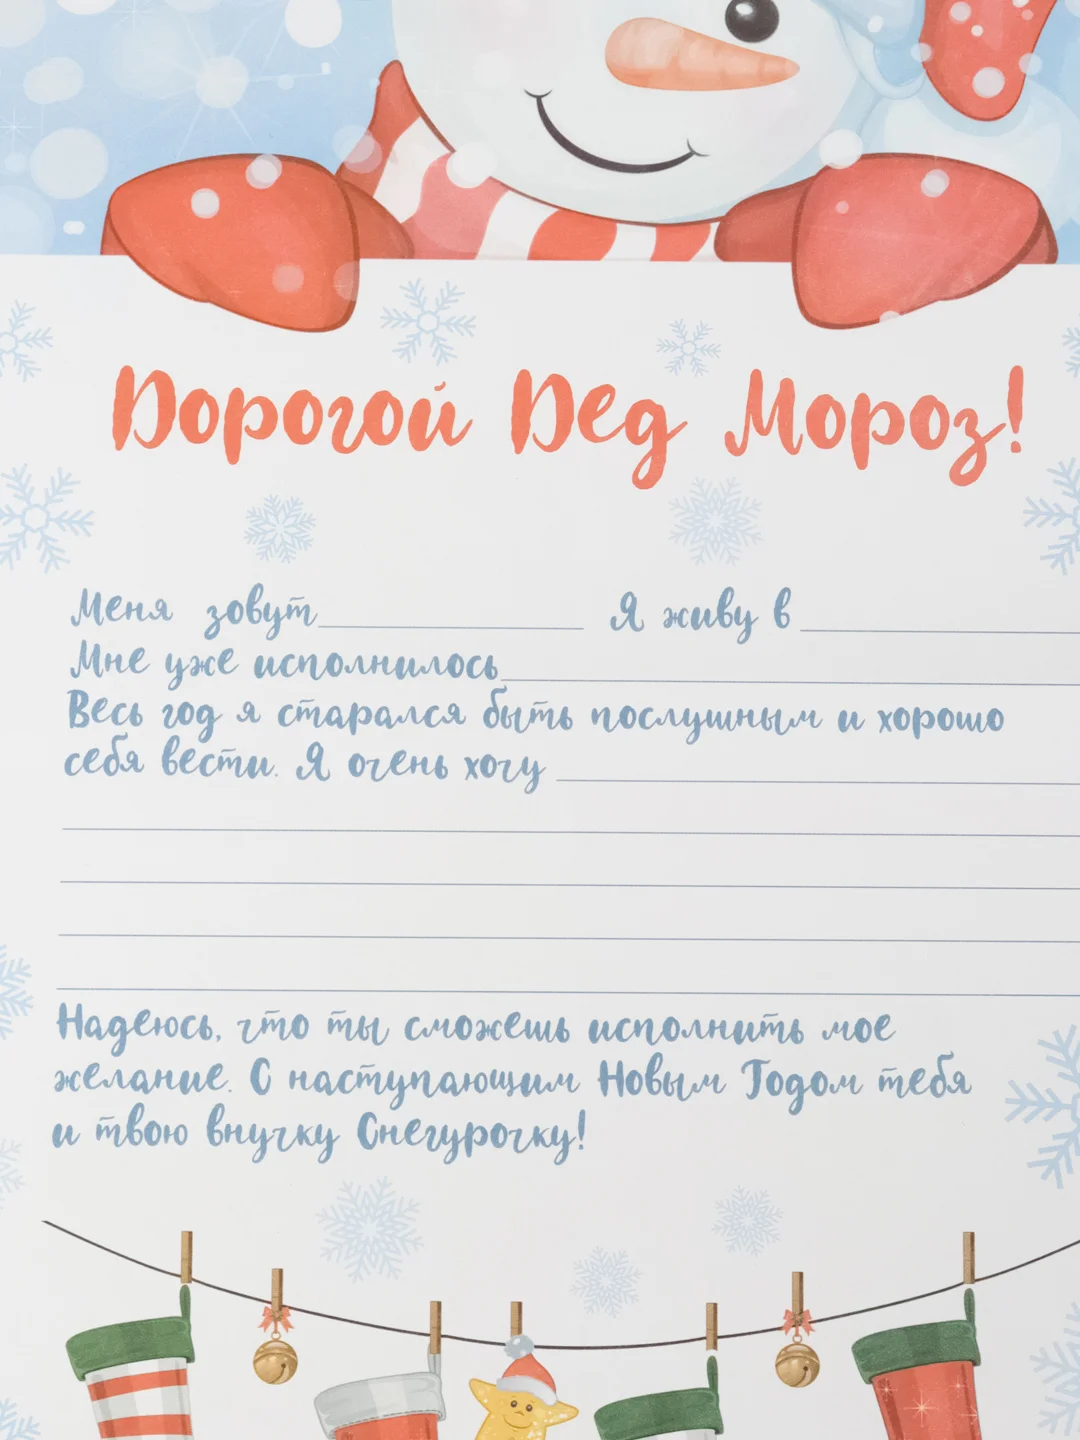 Дорогой Дед Мороз!
Меня зовут Я живу в
Мне уже исполнилось
Весь год я старался быть послушным и хорошо
себя вести. Я очень хочу
Надеюсь, что ты сможешь исполнить мое
желание. С наступающим Новым Годом тебя
и твою внучку Снегурочку!